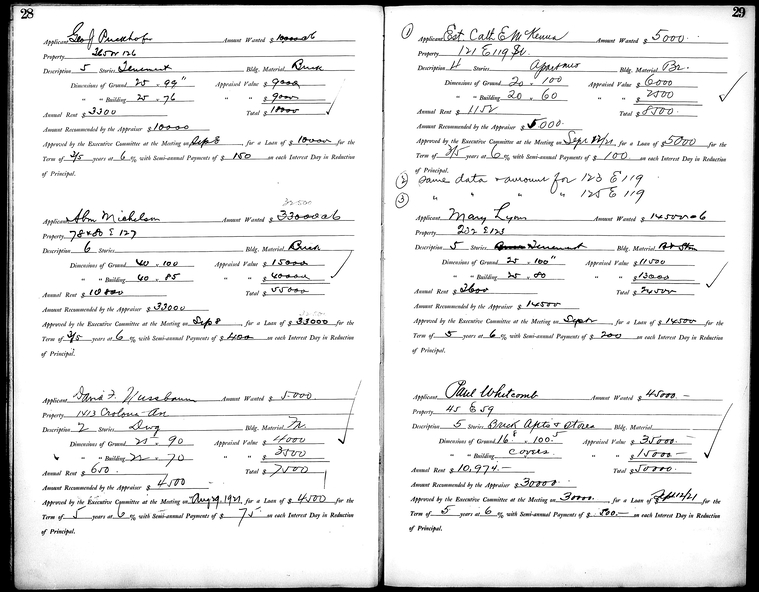 28
Applicant Geo J Amount Wanted $ 10000 a 6
Property 365 W 126
Description 5 Stories Tenement Bldg. Material Brick
Dimensions of Ground 25 . 99" Appraised Value $ 9000
" " Building 25 . 76 " " $ 9000
Annual Rent $ 3300 Total $ 18000
Amount Recommended by the Appraiser $ 10000
Approved by the Executive Committee at the Meeting on Sep 8 for a Loan of $ 10000 for the
Term of 3/5 years at 6 % with Semi-annual Payments of $ 150 on each Interest Day in Reduction
of Principal.
32500
Applicant Abm Michelson Amount Wanted $ 33000 a 6
Property 78 & 80 E 127
Description 6 Stories Bldg. Material Brick
Dimensions of Ground 40 . 100 Appraised Value $ 15000
" " Building 40 . 85 " " $ 40000
Annual Rent $ 10800 Total $ 55000
Amount Recommended by the Appraiser $ 33000
Approved by the Executive Committee at the Meeting on Sep 8 for a Loan of $ 33000 for the
Term of 3/5 years at 6 % with Semi-annual Payments of $ 400 on each Interest Day in Reduction
of Principal.
Applicant David F. Nussbaum Amount Wanted $ 5000
Property 1413 Crotona Av
Description 2 Stories Dwg Bldg. Material Fr.
Dimensions of Ground 25 . 90 Appraised Value $ 4000
" " Building 22 . 70 " " $ 3500
Annual Rent $ 650 Total $ 7500
Amount Recommended by the Appraiser $ 4500
Approved by the Executive Committee at the Meeting on Aug 29, 1921 for a Loan of $ 4500 for the
Term of 5 years at 6 % with Semi-annual Payments of $ 75 on each Interest Day in Reduction
of Principal.
29
① Applicant Est Cath E McKenna Amount Wanted $ 5000
Property 121 E 119 St.
Description 4 Stories Apartmts Bldg. Material Br.
Dimensions of Ground 20 . 100 Appraised Value $ 6000
" " Building 20 . 60 " " $ 2500
Annual Rent $ 1152 Total $ 8500
Amount Recommended by the Appraiser $ 5000
Approved by the Executive Committee at the Meeting on Sept 12/21 for a Loan of $ 5000 for the
Term of 3/5 years at 6 % with Semi-annual Payments of $ 100 on each Interest Day in Reduction
of Principal.
② Same data & amount for 123 E 119
③ " " " " 125 E 119
Applicant Mary Lyons Amount Wanted $ 14500 a 6
Property 202 E 123
Description 5 Stories Tenement Bldg. Material
Dimensions of Ground 25 . 100" Appraised Value $ 11500
" " Building 25 . 80 " " $ 13000
Annual Rent $ 3600 Total $ 24500
Amount Recommended by the Appraiser $ 14500
Approved by the Executive Committee at the Meeting on for a Loan of $ 14500 for the
Term of 5 years at 6 % with Semi-annual Payments of $ 200 on each Interest Day in Reduction
of Principal.
Applicant Paul Whitcomb Amount Wanted $ 45000 -
Property 45 E 59
Description 5 Stories Brick Apts & Stores Bldg. Material
Dimensions of Ground 16.8 . 100.5 Appraised Value $ 35000 -
" " Building covers " " $ 15000 -
Annual Rent $ 10,974 - Total $ 50000 -
Amount Recommended by the Appraiser $ 30000
Approved by the Executive Committee at the Meeting on 30000 for a Loan of $ Sept 12/21 for the
Term of 5 years at 6 % with Semi-annual Payments of $ 500 - on each Interest Day in Reduction
of Principal.